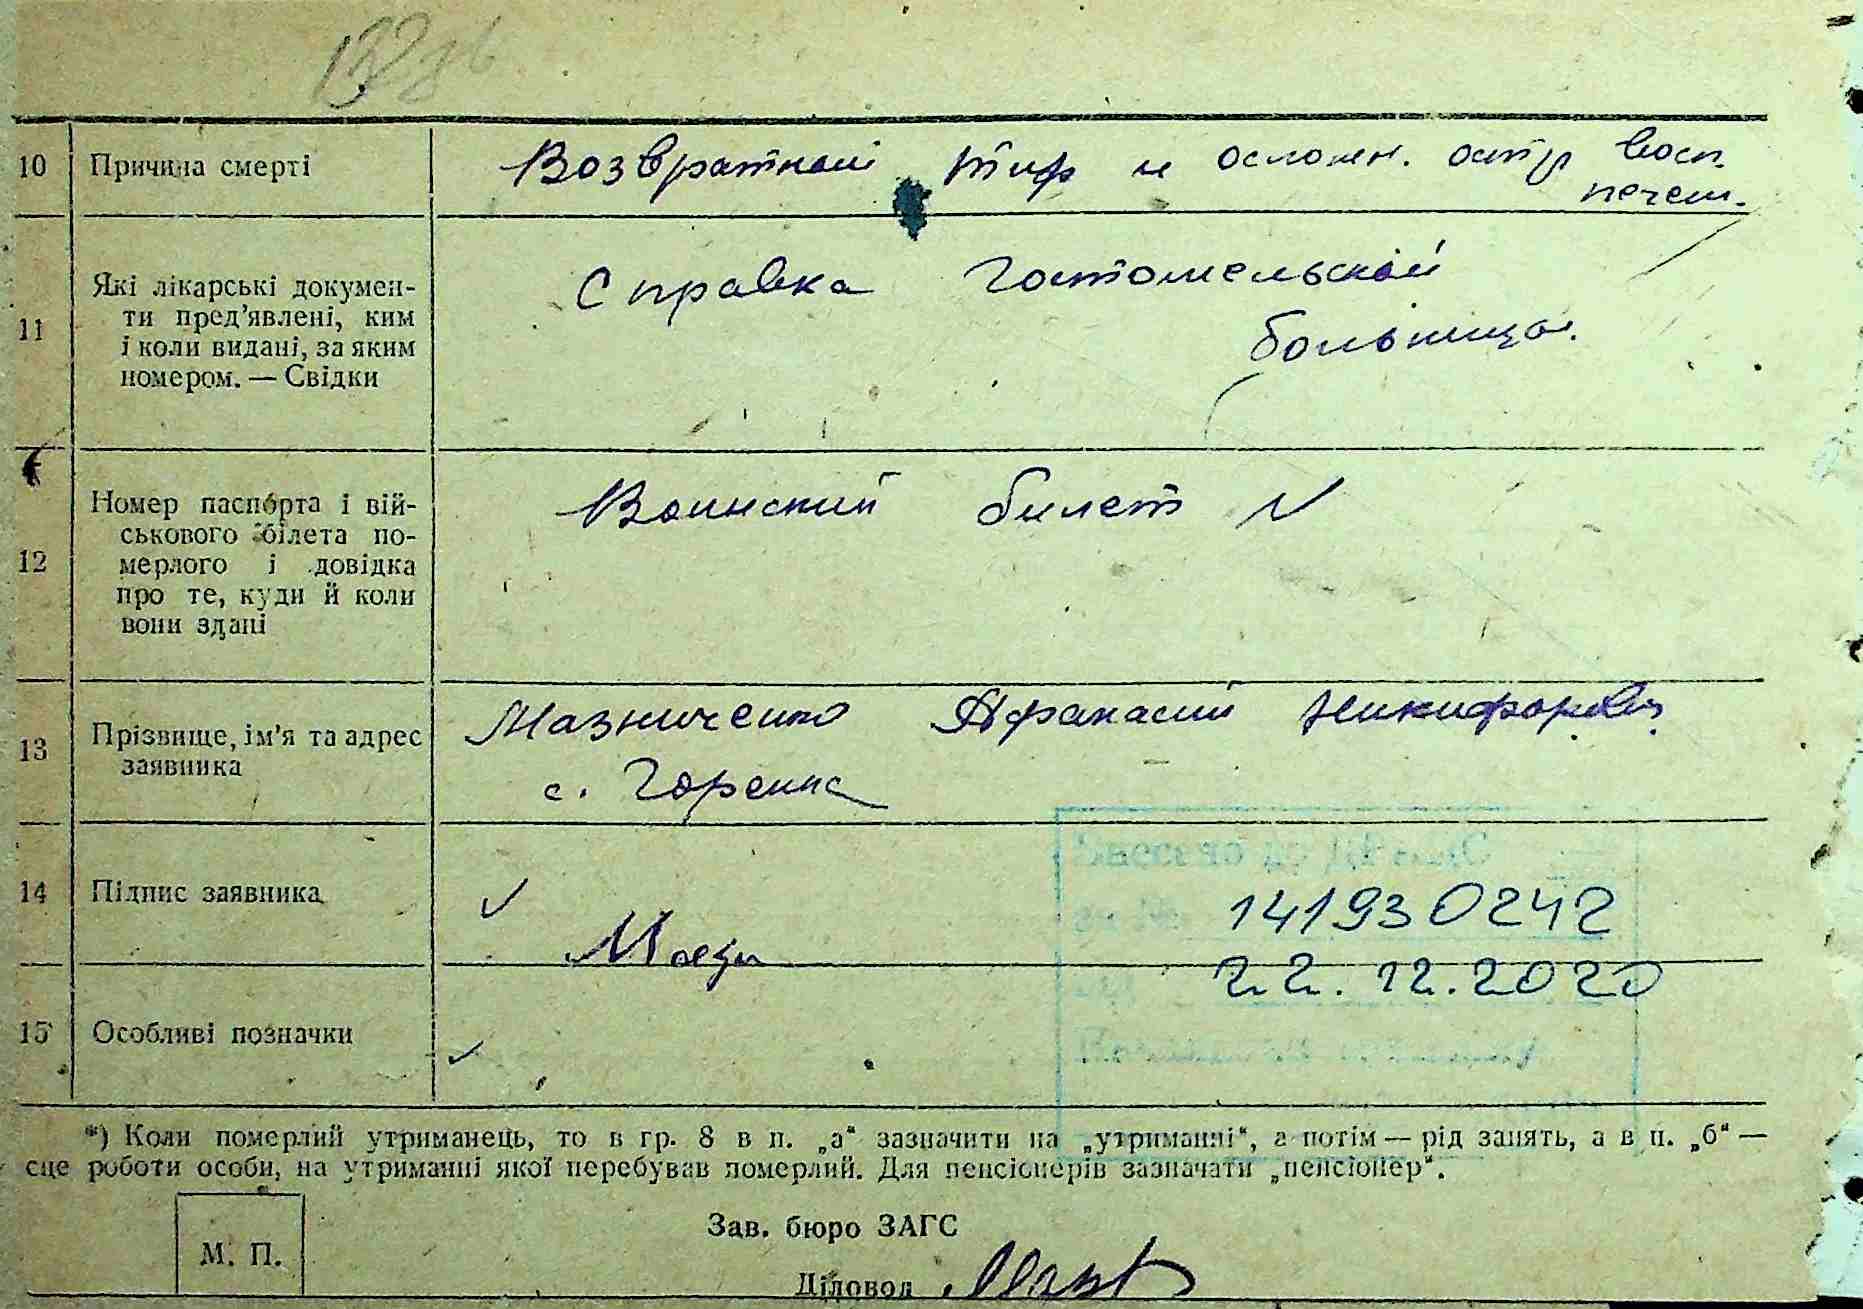 10 Причина смерті Возвратный тиф и осложн. остр восп.
печени.
11 Які лікарські докумен-
ти пред’явлені, ким
і коли видані, за яким
номером. — Свідки
Справка Гостомельской
больницы.
12 Номер паспорта і вій-
ськового білета по-
мерлого і довідка
про те, куди й коли
вони здані
Воинский билет №
13 Прізвище, ім’я та адрес
заявника
Мазниченко Афанасий Никифорович
с. Горенка
14 Підпис заявника
141930242
22.12.2020
15 Особливі позначки
*) Коли померлий утриманець, то в гр. 8 в п. „а“ зазначити на „утриманні“, а потім — рід занять, а в п. „б“ —
сце роботи особи, на утриманні якої перебував померлий. Для пенсіонерів зазначати „пенсіонер“.
Зав. бюро ЗАГС
М. П.
Діловод